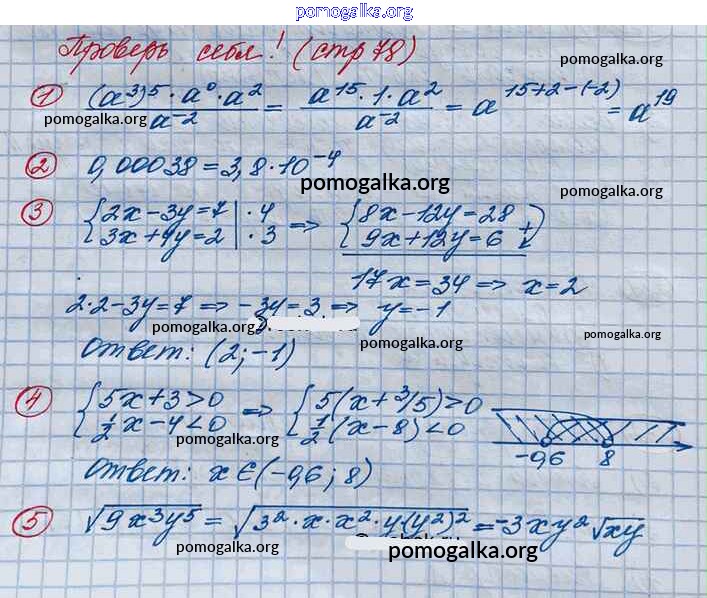 pomogalka.org
Проверь себя! (стр 78)
pomogalka.org
1 (a³)⁵ · a⁰ · a² / a⁻² = a¹⁵ · 1 · a² / a⁻² = a¹⁵⁺²⁻⁽⁻²⁾ = a¹⁹
pomogalka.org
2 0,00038 = 3,8 · 10⁻⁴
pomogalka.org
pomogalka.org
3 { 2x − 3y = 7 | · 4 => { 8x − 12y = 28
3x + 4y = 2 | · 3 9x + 12y = 6 +
17x = 34 => x = 2
2·2 − 3y = 7 => −3y = 3 => y = −1
pomogalka.org
pomogalka.org
pomogalka.org
Ответ: (2; −1)
4 { 5x + 3 > 0 => { 5(x + 3/5) > 0
½x − 4 < 0 ½(x − 8) < 0
pomogalka.org
−0,6 8
Ответ: x ∈ (−0,6; 8)
5 √9x³y⁵ = √3² · x · x² · y · (y²)² = −3xy² √xy
pomogalka.org
pomogalka.org